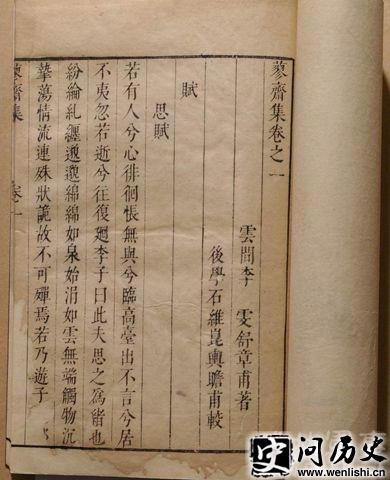 蓼齋集卷之一
雲間李 雯舒章甫著
後學石維崑輿瞻甫較
賦
思賦
若有人兮心徘徊悵無與兮臨高臺出不言兮居
不夷忽若逝兮往復廻李子曰此夫思之為緒也
紛綸糺纏邈邈綿綿如泉始涓如雲無端觸物沉
摯蕩情流連殊狀詭故不可殫焉若乃遊子
蓼齋集 卷一
史问历史
www.wenlishi.cn